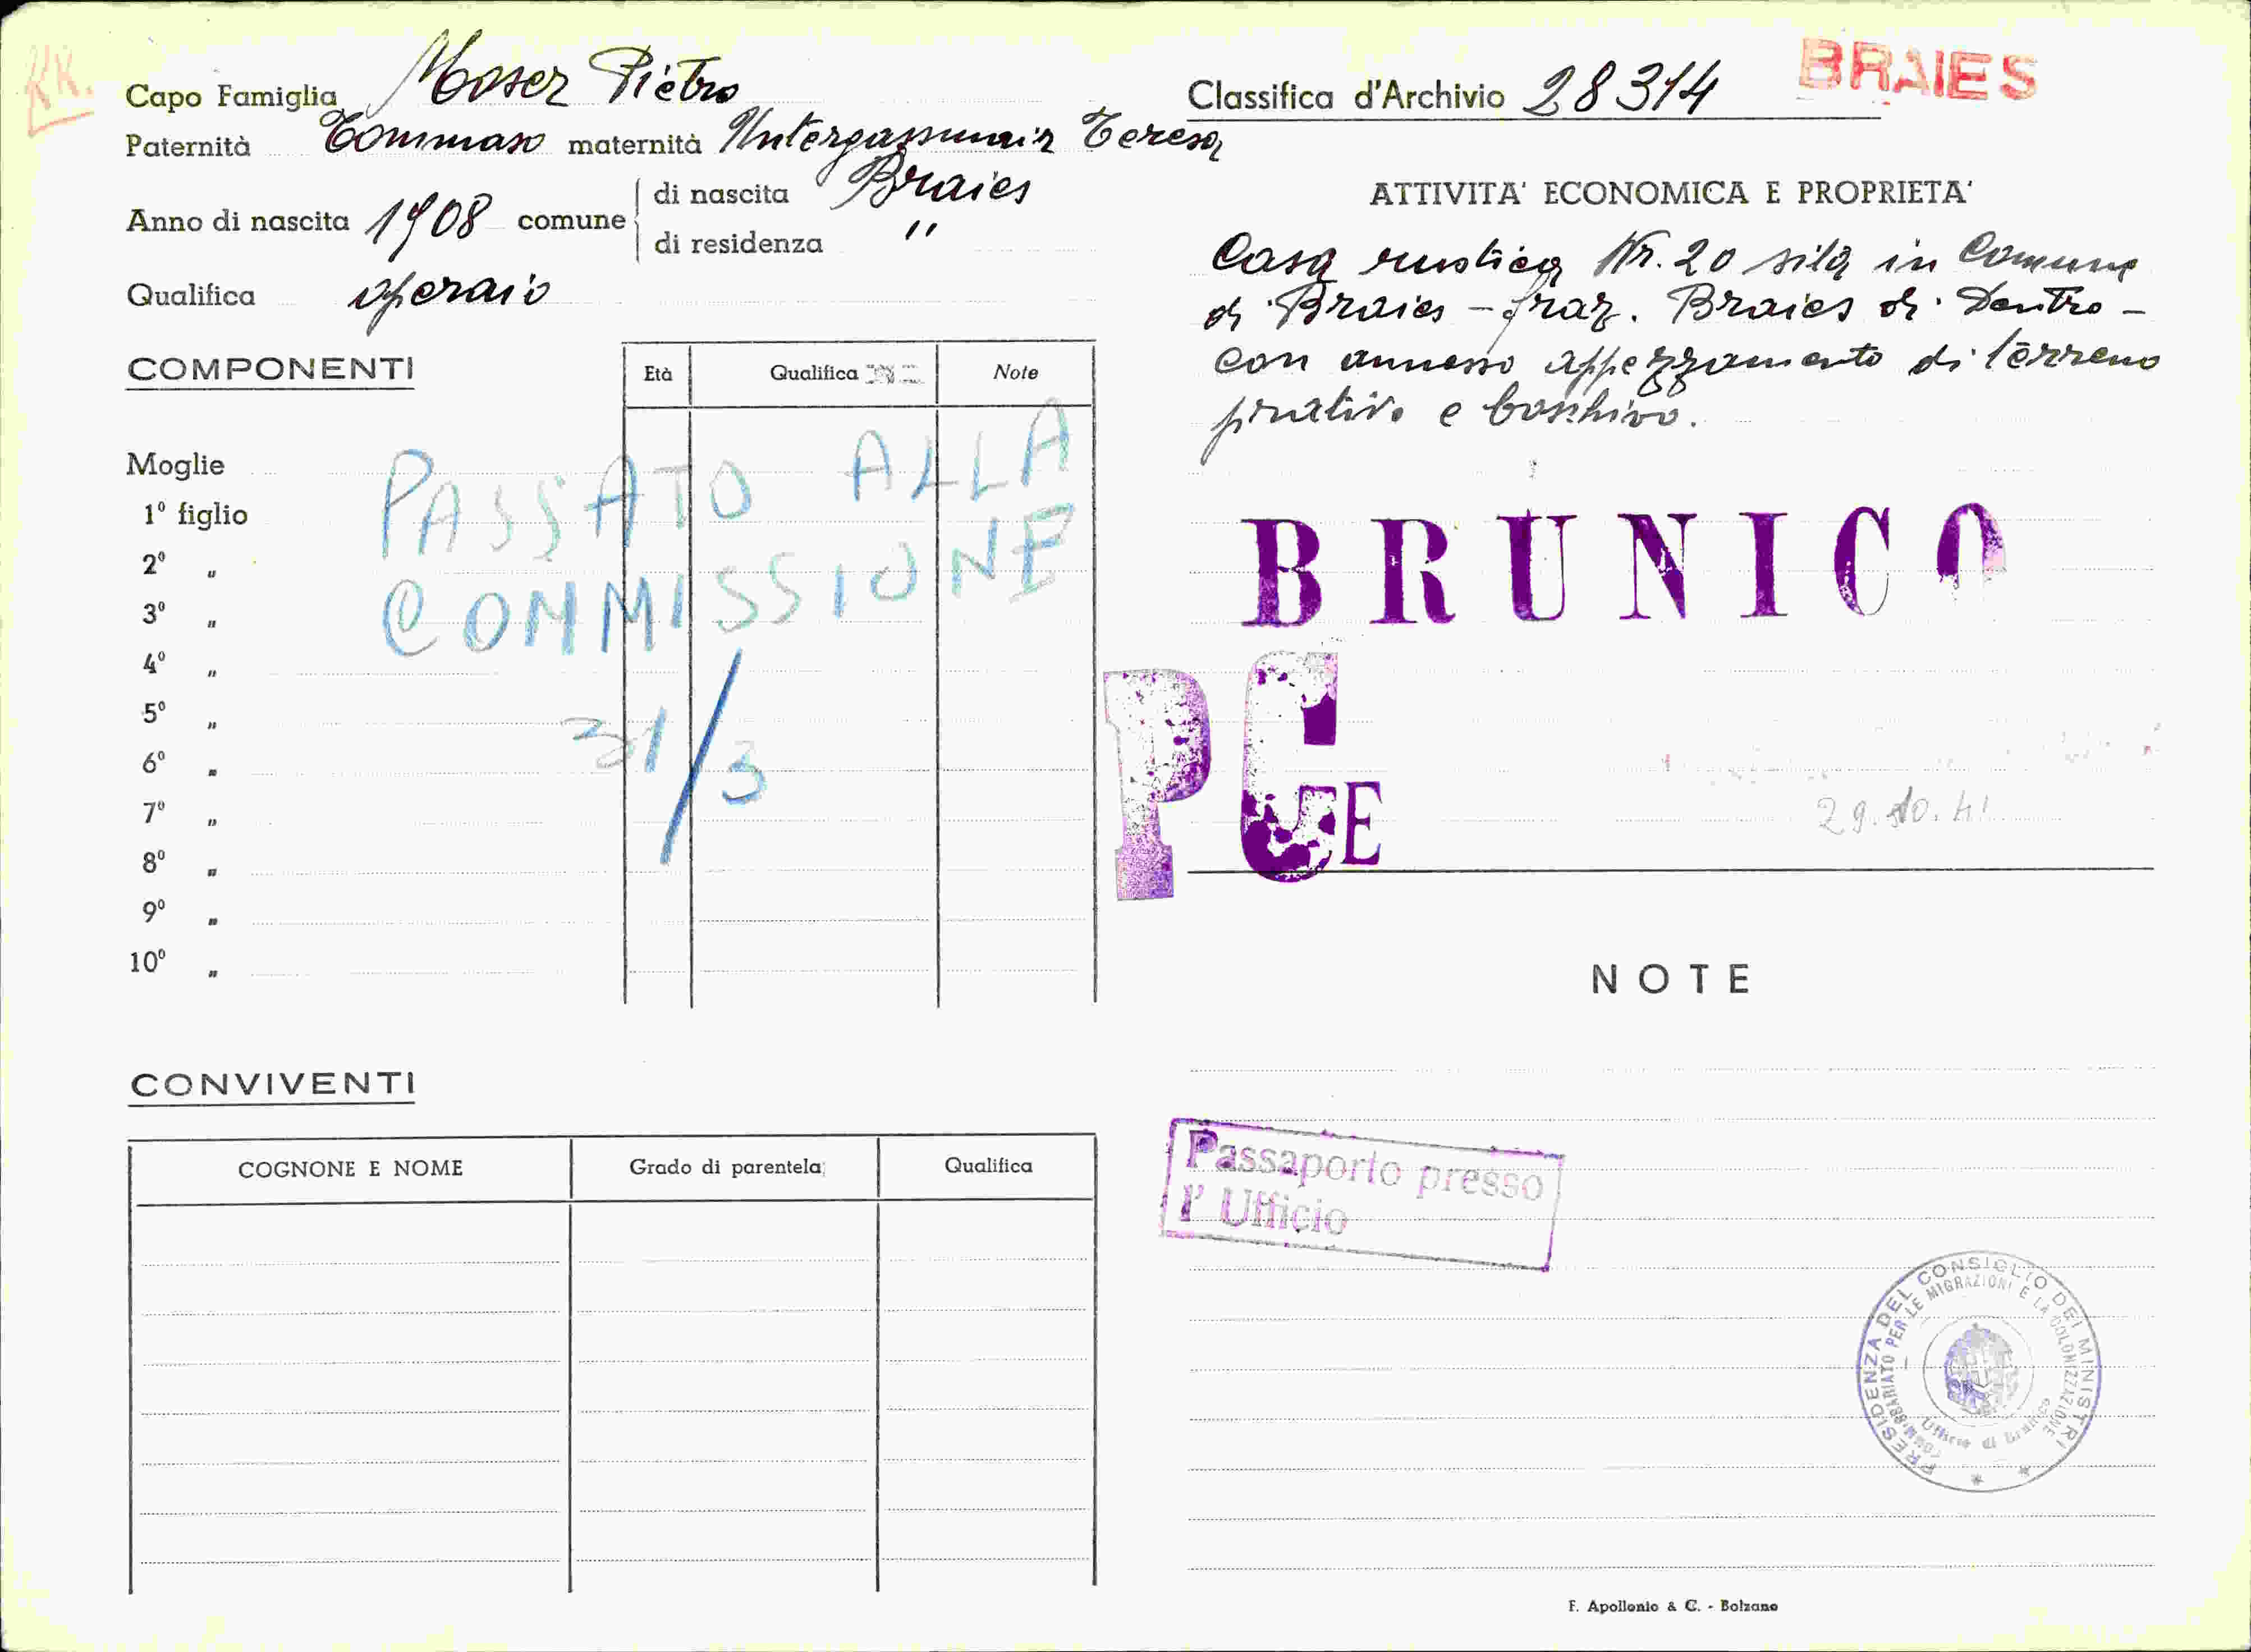 KK.
Capo Famiglia Moser Pietro
Paternità Tommaso maternità Untergassmair Teresa
Anno di nascita 1908 comune
di nascita Braies
di residenza "
Qualifica operaio
COMPONENTI
Età Qualifica Note
Moglie
1º figlio
2º "
3º "
4º "
5º "
6º "
7º "
8º "
9º "
10º "
PASSATO ALLA
COMMISSIONE
31/3
CONVIVENTI
COGNONE E NOME Grado di parentela Qualifica
Classifica d'Archivio 28314
BRAIES
ATTIVITA' ECONOMICA E PROPRIETA'
Casa rustica Nr. 20 sita in Comune
di Braies - fraz. Braies di Dentro -
con annesso appezzamento di terreno
prativo e boschivo.
BRUNICO
PG E
29.10.41
NOTE
Passaporto presso
l' Ufficio
PRESIDENZA DEL CONSIGLIO DEI MINISTRI
COMMISSARIATO PER LE MIGRAZIONI E LA COLONIZZAZIONE
Ufficio di Brunico
F. Apollonio & C. - Bolzano